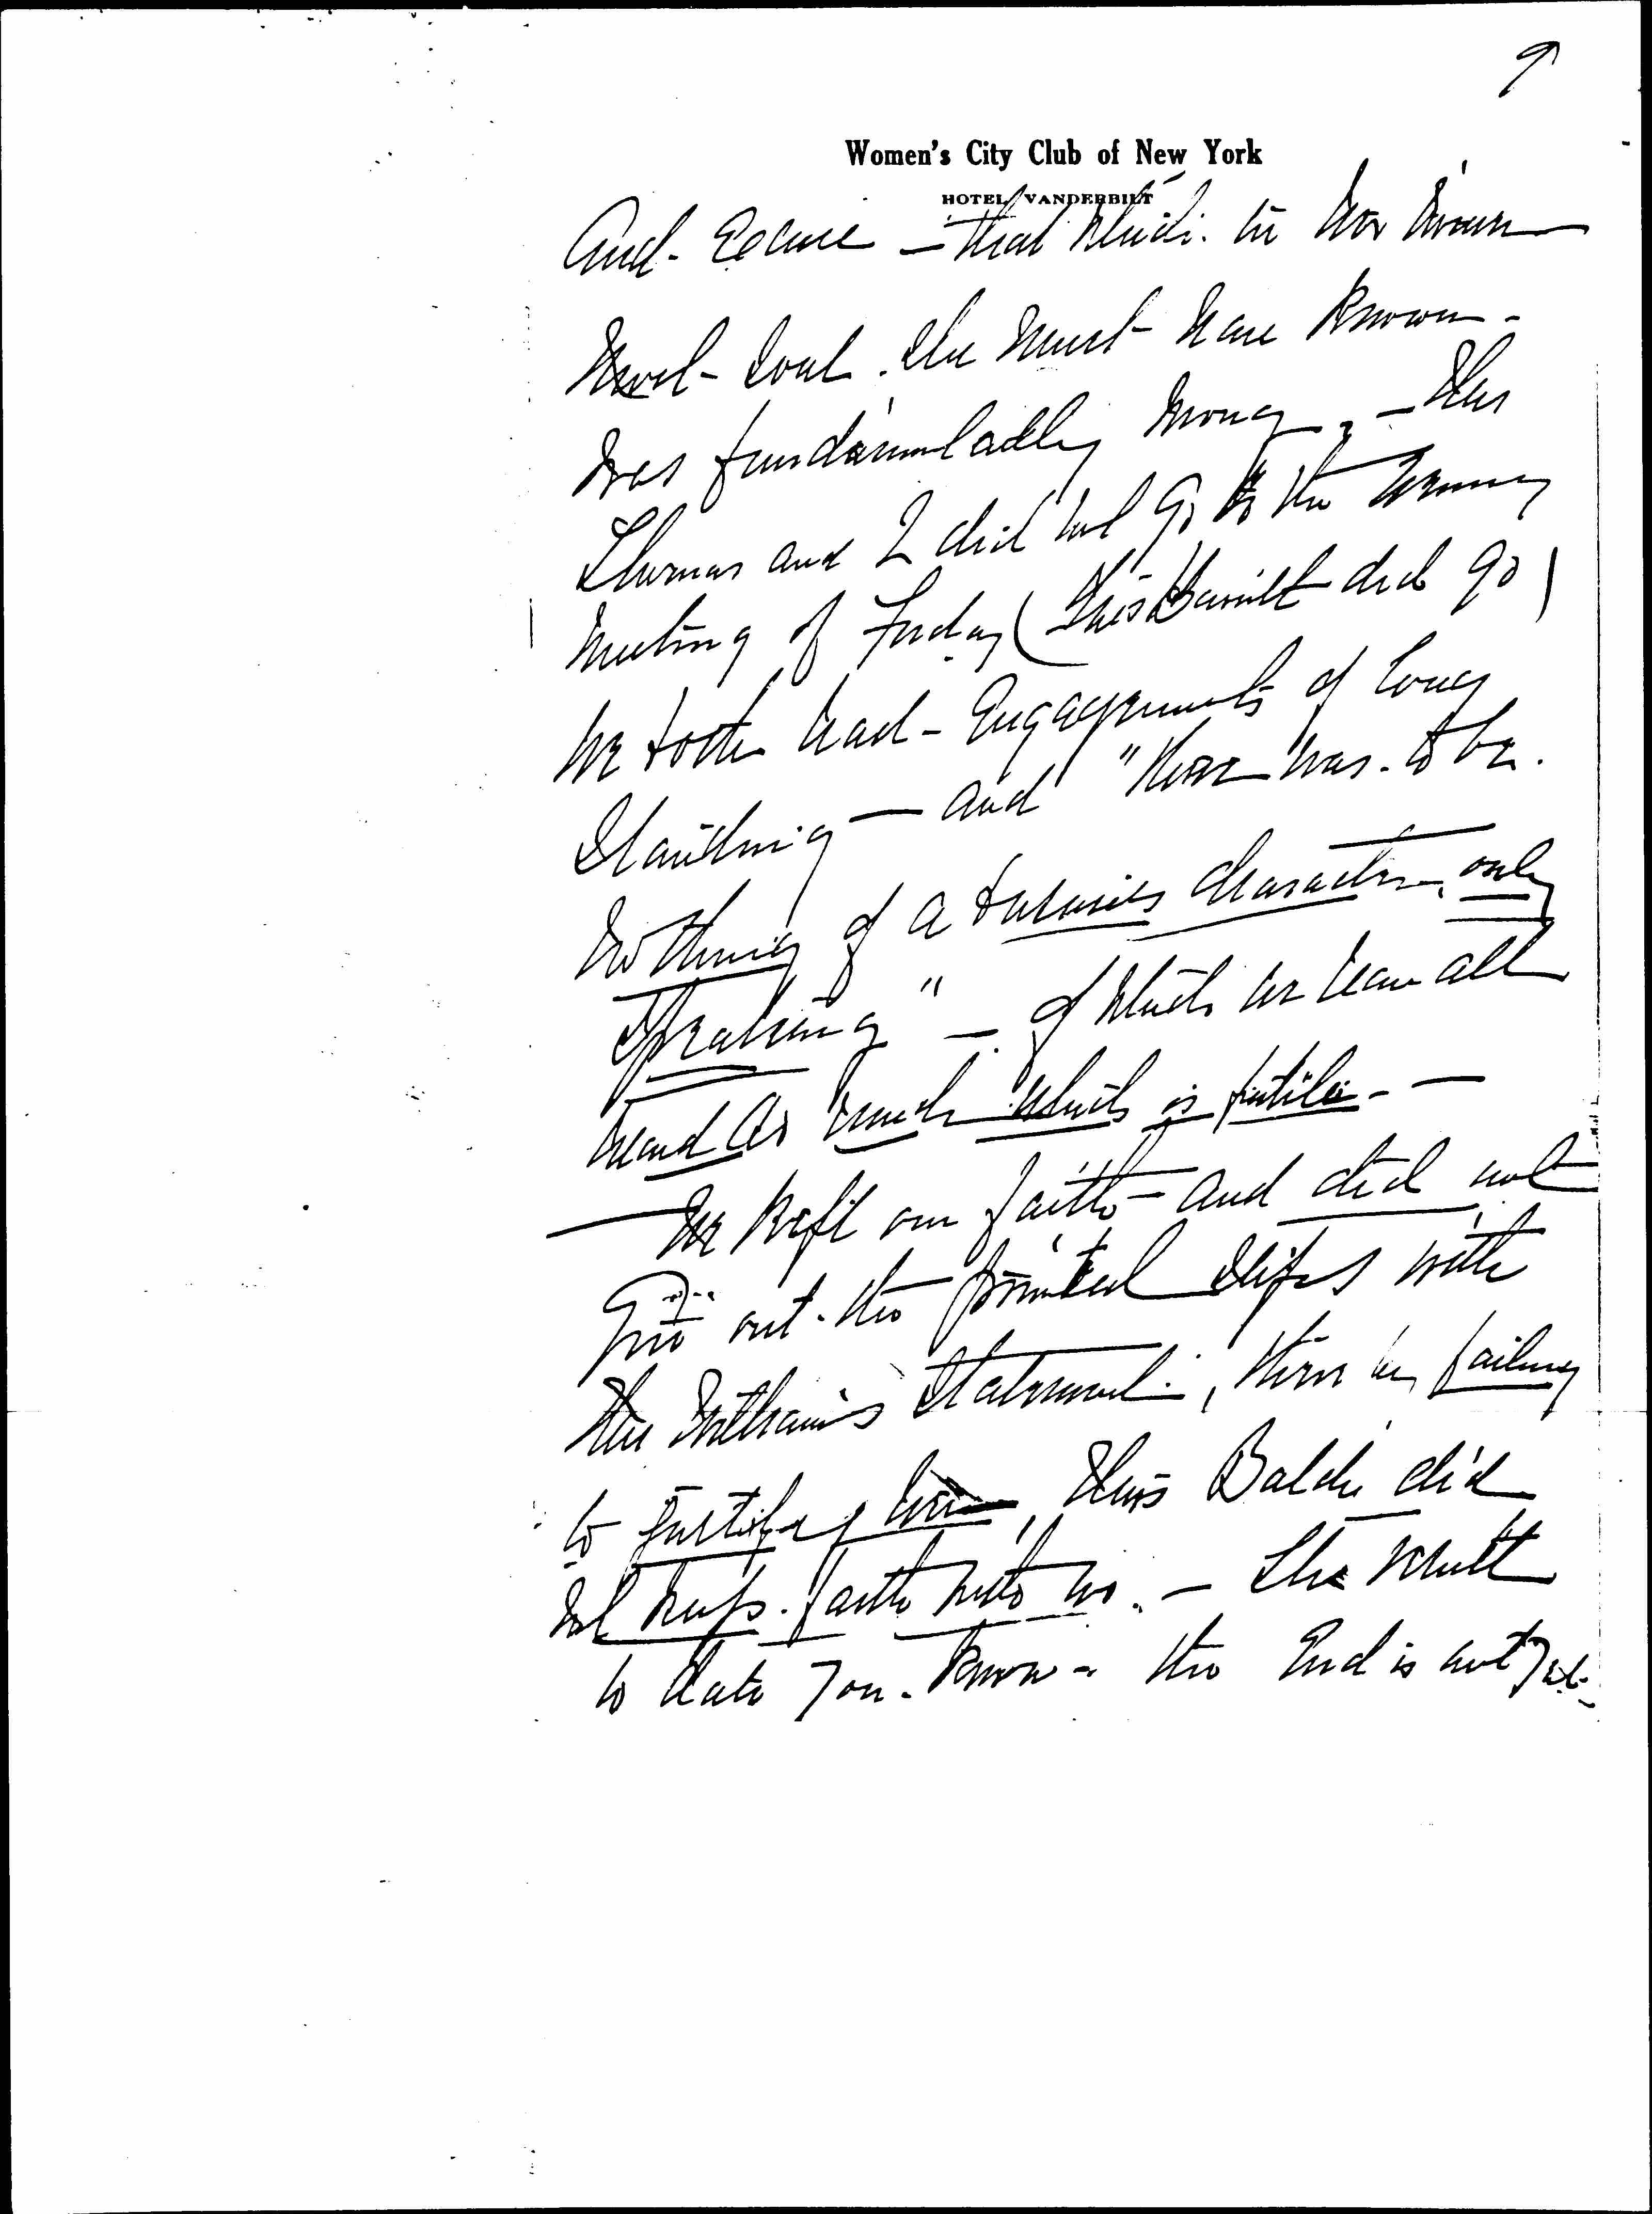 9
Women's City Club of New York
HOTEL VANDERBILT
And - – that which in her own
soul she must have known -
was fundamentally wrong. – Miss
Thomas and I did not go to the
meeting of Friday (Miss did go)
We both had - Engagements of long
Standing — and "there was to be
nothing of a business character, only
Speaking" – of which we have all
heard as much which is futile - —
— We kept our faith – and did not
give out the printed slips with
the statement, then by failing
to justify, Miss Balch did
not keep faith with us. – The result
to date you know - the End is not yet.